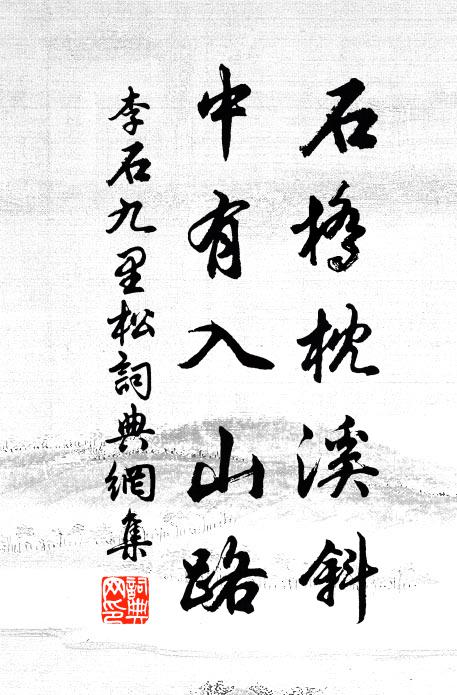 石橋枕溪斜
中有入山路
李石九里松詞典網集
詞典网印